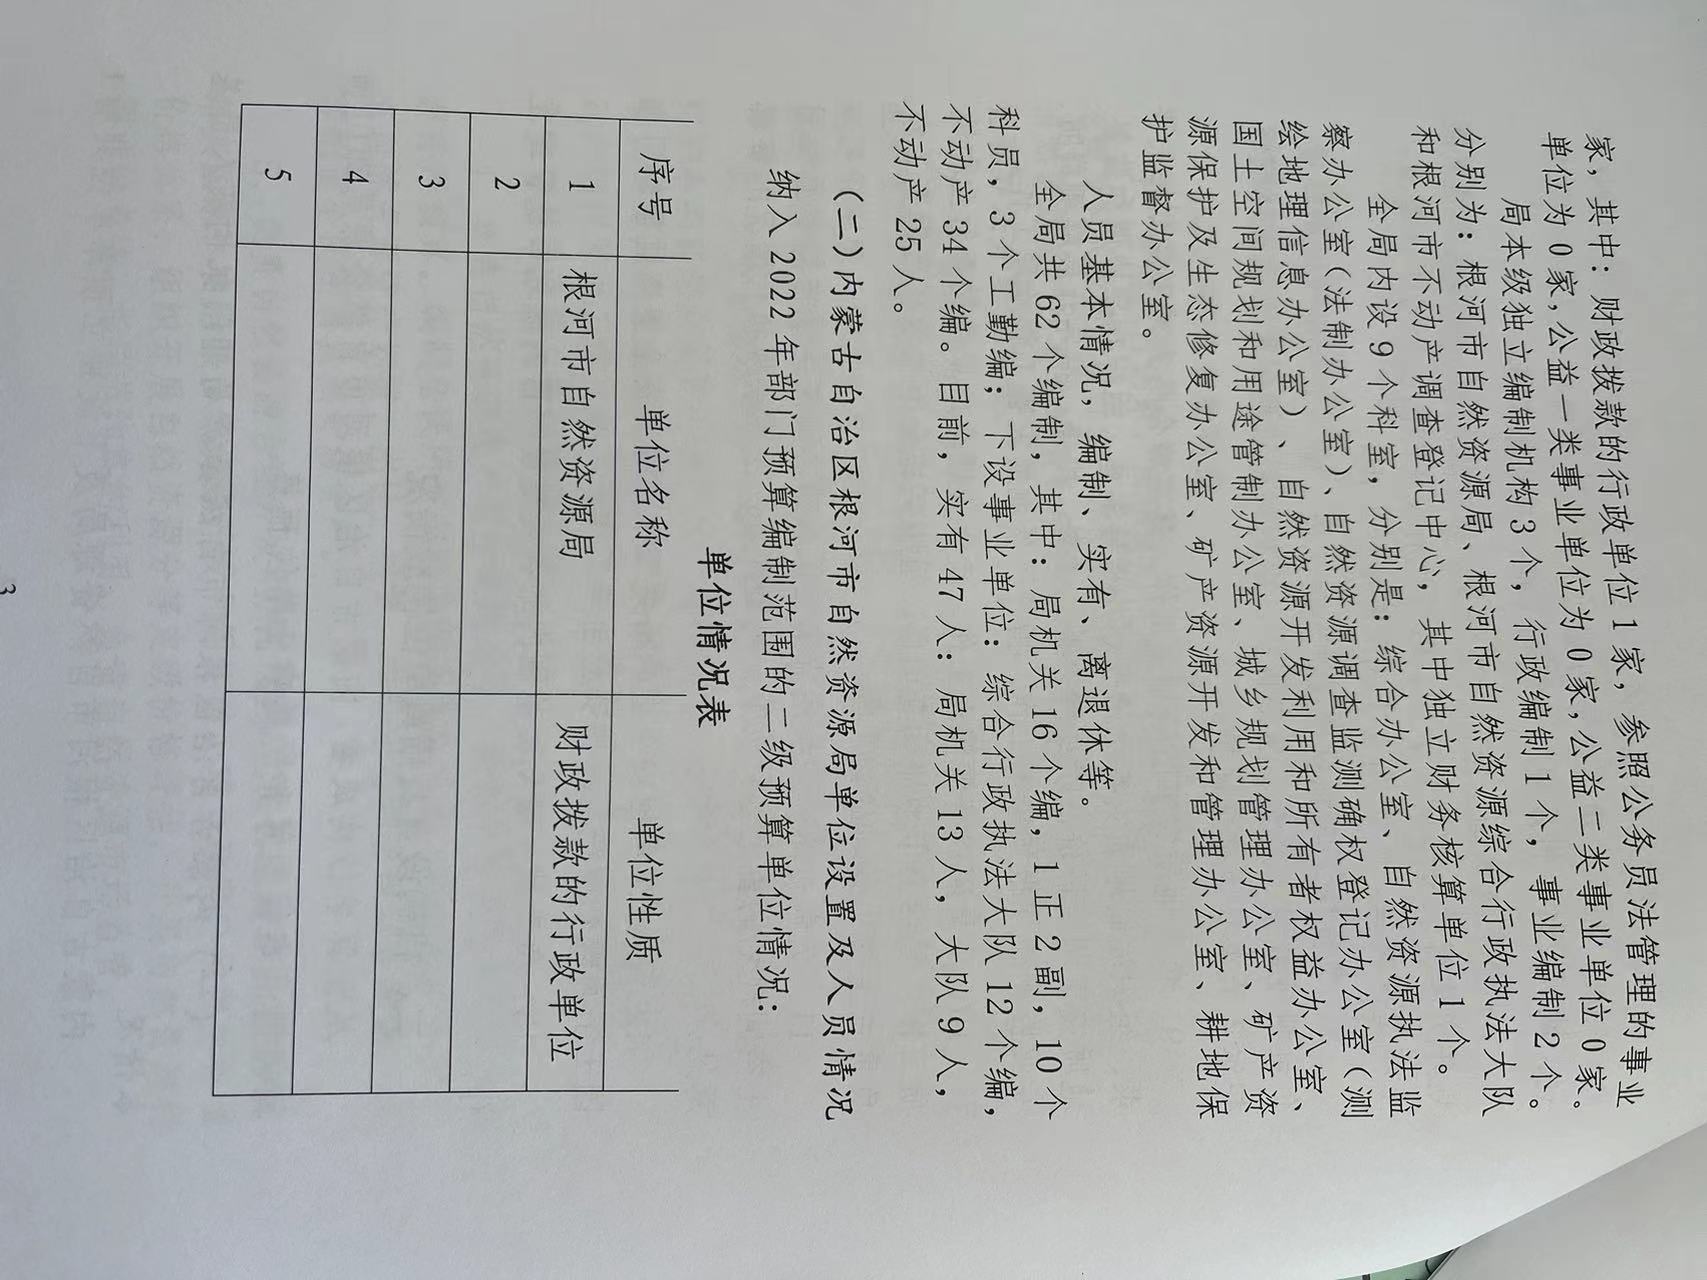 家，其中：财政拨款的行政单位 1 家，参照公务员法管理的事业
单位为 0 家，公益一类事业单位为 0 家，公益二类事业单位 0 家。
局本级独立编制机构 3 个，行政编制 1 个，事业编制 2 个。
分别为：根河市自然资源局、根河市自然资源综合行政执法大队
和根河市不动产调查登记中心，其中独立财务核算单位 1 个。
全局内设 9 个科室，分别是：综合办公室、自然资源执法监
察办公室（法制办公室）、自然资源调查监测确权登记办公室（测
绘地理信息办公室）、自然资源开发利用和所有者权益办公室、
国土空间规划和用途管制办公室、城乡规划管理办公室、矿产资
源保护及生态修复办公室、矿产资源开发和管理办公室、耕地保
护监督办公室。
人员基本情况，编制、实有、离退休等。
全局共 62 个编制，其中：局机关 16 个编，1 正 2 副，10 个
科员，3 个工勤编；下设事业单位：综合行政执法大队 12 个编，
不动产 34 个编。目前，实有 47 人：局机关 13 人，大队 9 人，
不动产 25 人。
（二）内蒙古自治区根河市自然资源局单位设置及人员情况
纳入 2022 年部门预算编制范围的二级预算单位情况：
单位情况表
序号 单位名称 单位性质
1 根河市自然资源局 财政拨款的行政单位
2
3
4
5
3